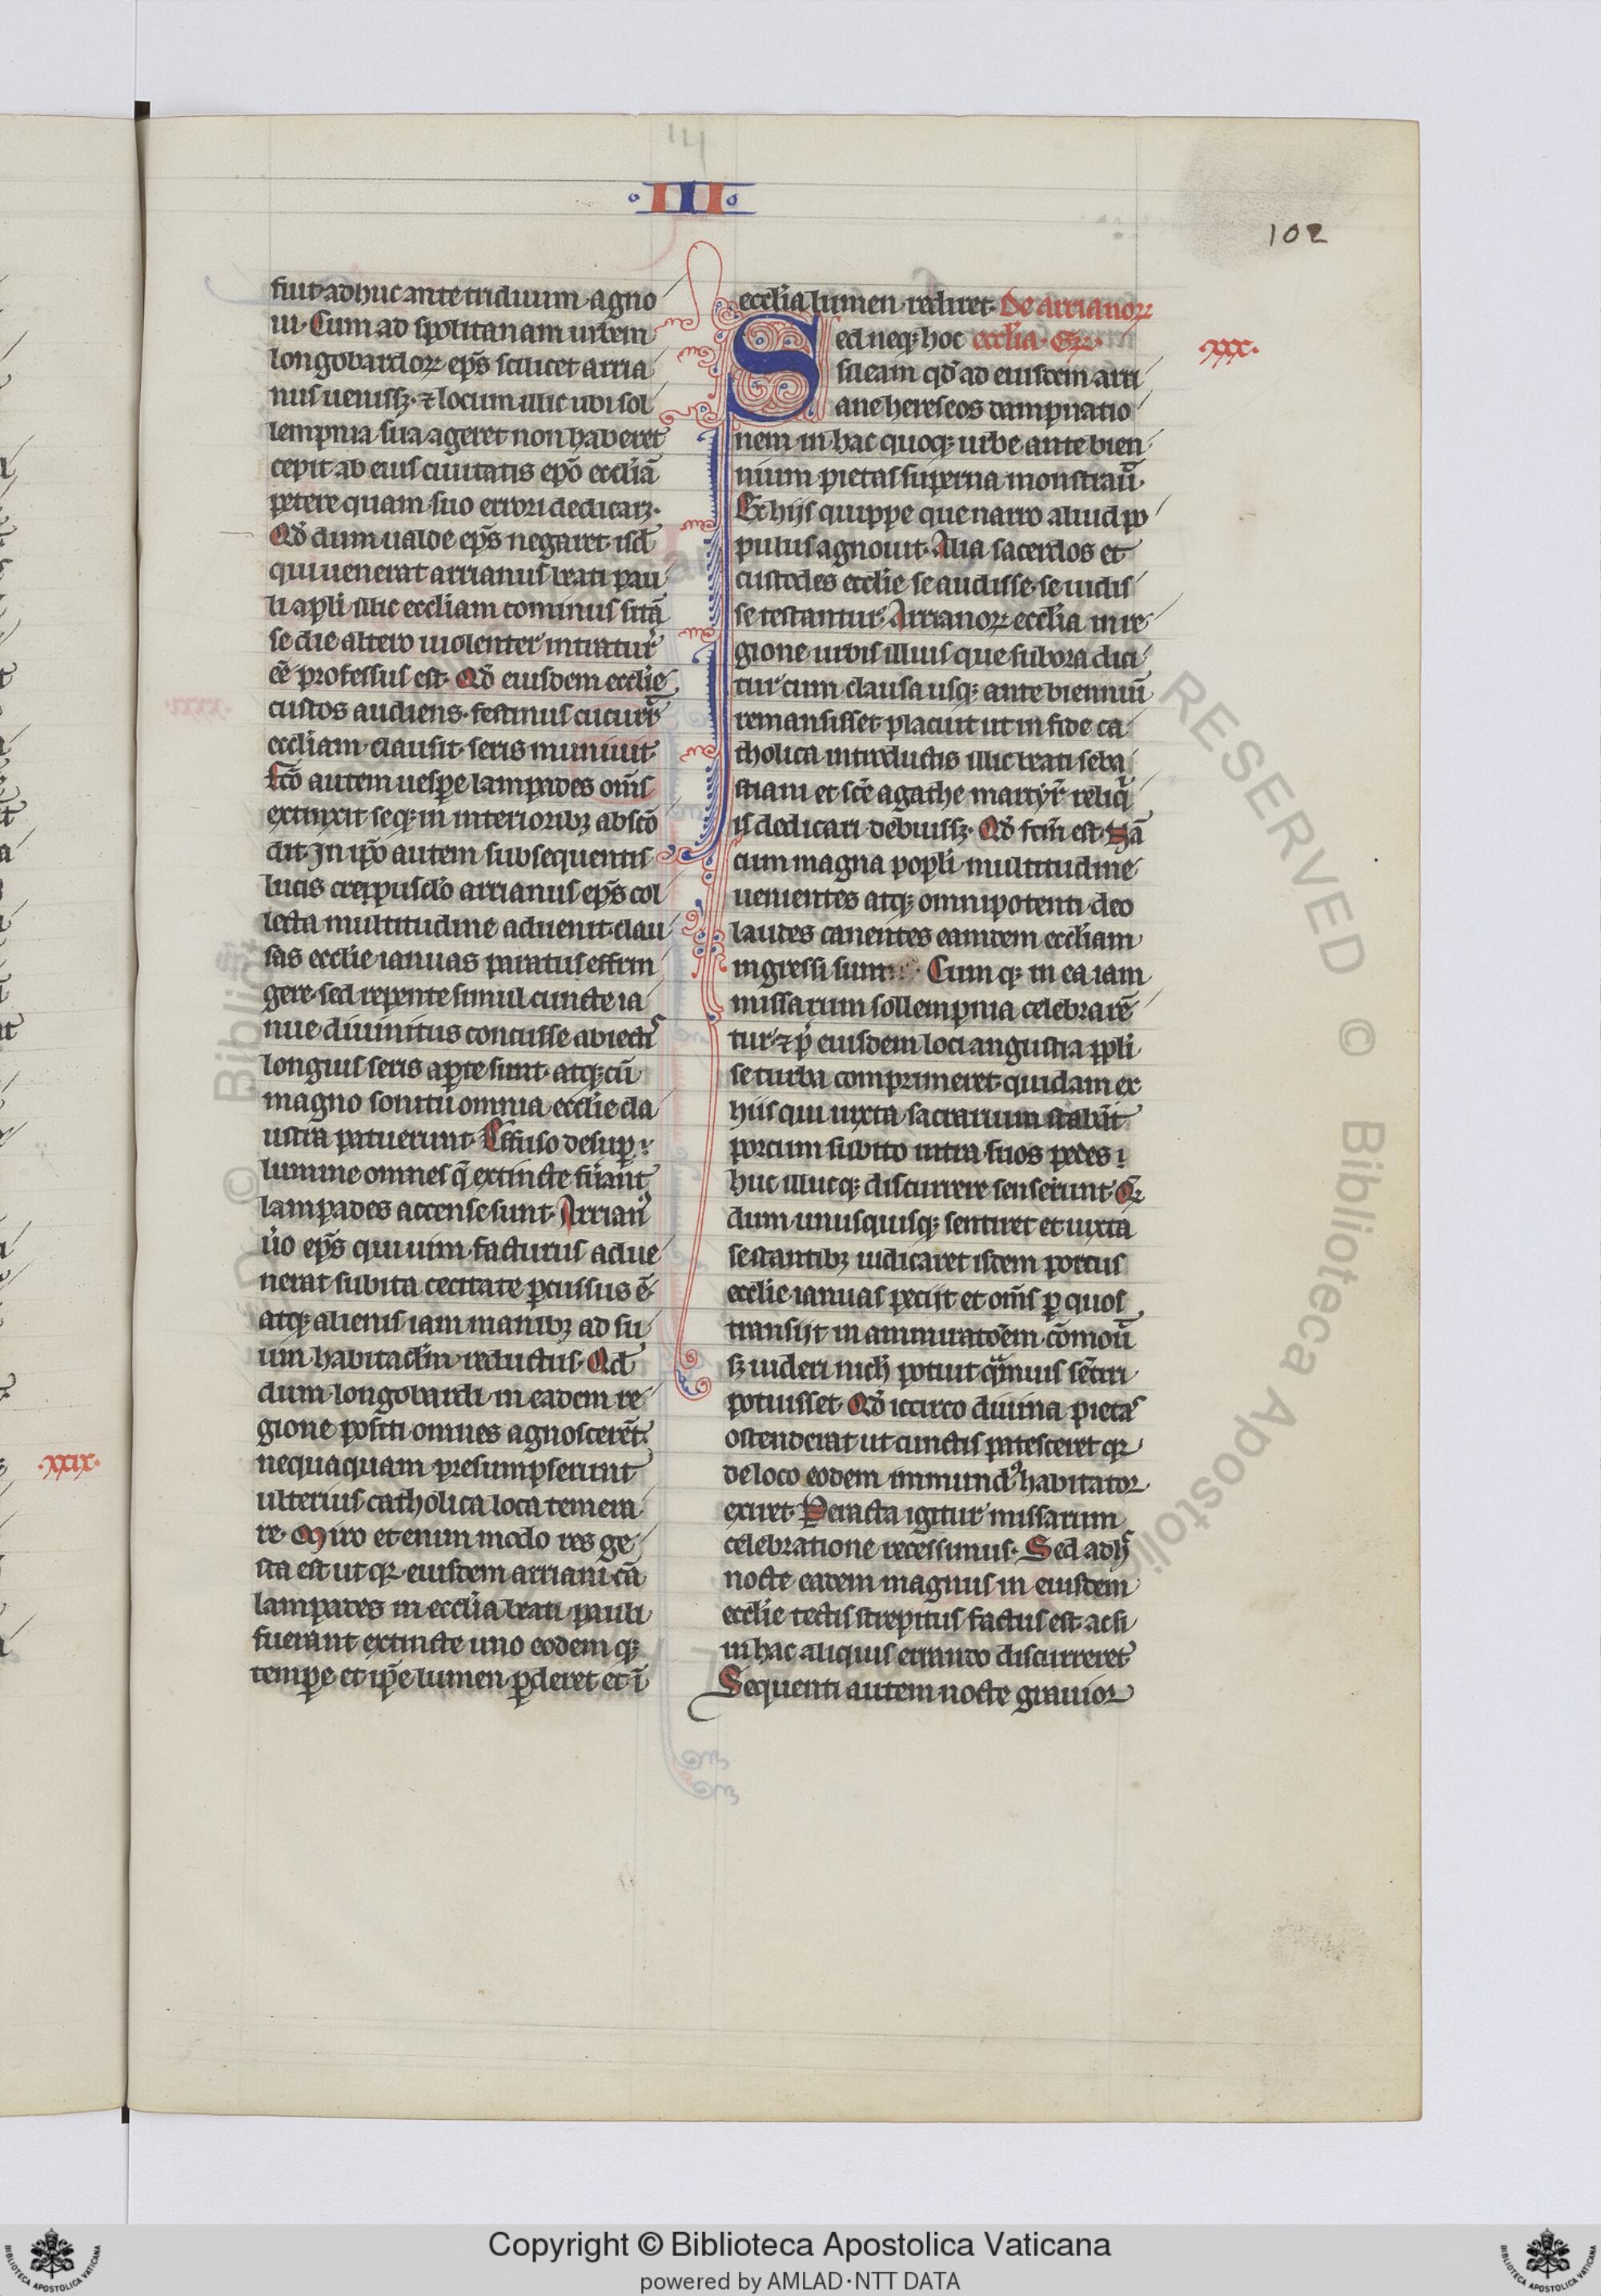 III
102
fiut adhuc ante triduum agno
ui. Cum ad spolitanam urbem
longobardoꝝ ep̄s scilicet arria
nus uenissꝫ. ⁊ locum illic ubi sol
lempnia sua ageret non haberet
cepit ab eius ciuitatis ep̄o eccl̄iā
petere quam suo errori dedicarꝫ.
Qd̄ dum ualde ep̄s negaret isd̄
qui uenerat arrianus beati pau
li apl̄i illic eccl̄iam cominus sitā
se die altero uiolenter intratur᷒
cē professus est. Qd̄ eiusdem eccl̄ie
custos audiens. festinus cucurr̄
eccl̄iam clausit seris muniuit.
fc̄o autem uesp̄e lampades om̄s
extinxit seqꝫ in interioribꝫ abscō
dit. In ip̄o autem subsequentis
lucis crepusclo arrianus ep̄s col
lecta multitudine aduenit. clau
sas eccl̄ie ianuas paratus effrin
gere. sed repente simul cuncte ia
nue diuinitus concusse abiectis
longius seris aꝑte sunt. atqꝫ cū
magno sonitu omnia eccl̄ie cla
ustra patuerunt. Effuso desuꝑ
lumine omnes q̄ extincte fuꝛant
lampades accense sunt. Arrian᷒
uo ep̄s qui uim facturus adue
nerat subita cecitate ꝑcussus ē.
atqꝫ alienis iam manibꝫ ad su
um habitaclm reductus. Qd̄
dum longobardi in eadem re
gione positi omnes agnoscerēt.
nequaquam presumpserunt
ulterius catholica loca temera
re. Miro etenim modo res ge
sta est ut qꝛ eiusdem arriani cā
lampades in eccl̄ia beati pauli
fuerant extincte uno eodem qꝫ
temꝑe et ip̄e lumen ꝑderet et ī
.xxix.
eccl̄ia lumen rediret. De arrianoꝝ
ed neqꝫ hoc eccl̄ia. Gꝛ.
.xxx.
S
sileam qd̄ ad eiusdem arri
ane hereseos dampnatio
nem in hac quoqꝫ urbe ante bien
nium pietas superna monstrau᷒.
Ex hijs quippe que narro aliud po
pulus agnouit. Alia sacerdos et
custodes eccl̄ie se audisse. se uidis
se testantur. Arrianoꝝ eccl̄ia in re
gione urbis illius que subora dici
tur cum clausa usqꝫ ante bienniū
remansisset. placuit ut in fide ca
tholica introductis illic beati seba
stiani et sc̄e agathe martyꝛ reliq̄
is dedicari debuissꝫ. Qd̄ fc̄m est. Nā
cum magna popl̄i multitudine
uenientes atqꝫ omnipotenti deo
laudes canentes eamdem eccl̄iam
ingressi sunt. Cum qꝫ in ea iam
missarum sollempnia celebrarē
tur ⁊ p̄ eiusdem loci angustia ppl̄i
se turba comprimeret quidam ex
hiis qui iuxta sacrarium stabāt
porcum subito intra suos pedes
huc illucqꝫ discurrere senserunt. Qꝛ
dum unusquisqꝫ sentiret et iuxta
se stantibꝫ iudicaret isdem porcus
eccl̄ie ianuas pecijt et om̄s ꝑ quos
transijt in ammiratoēm cōmou᷒
sꝫ uideri nich̄ potuit q̄muis sētiri
potuisset. Qd̄ iccirco diuina pietas
ostenderat ut cunctis patesceret qꝛ
de loco eodem immund᷒ habitator
exiret. Peracta igitur missarum
celebratione recessimus. Sed adh᷒
nocte eadem magnus in eiusdem
eccl̄ie tectis strepitus factus est. acsi
in hac aliquis errando discurreret
Sequenti autem nocte grauior
Copyright © Biblioteca Apostolica Vaticana
powered by AMLAD·NTT DATA